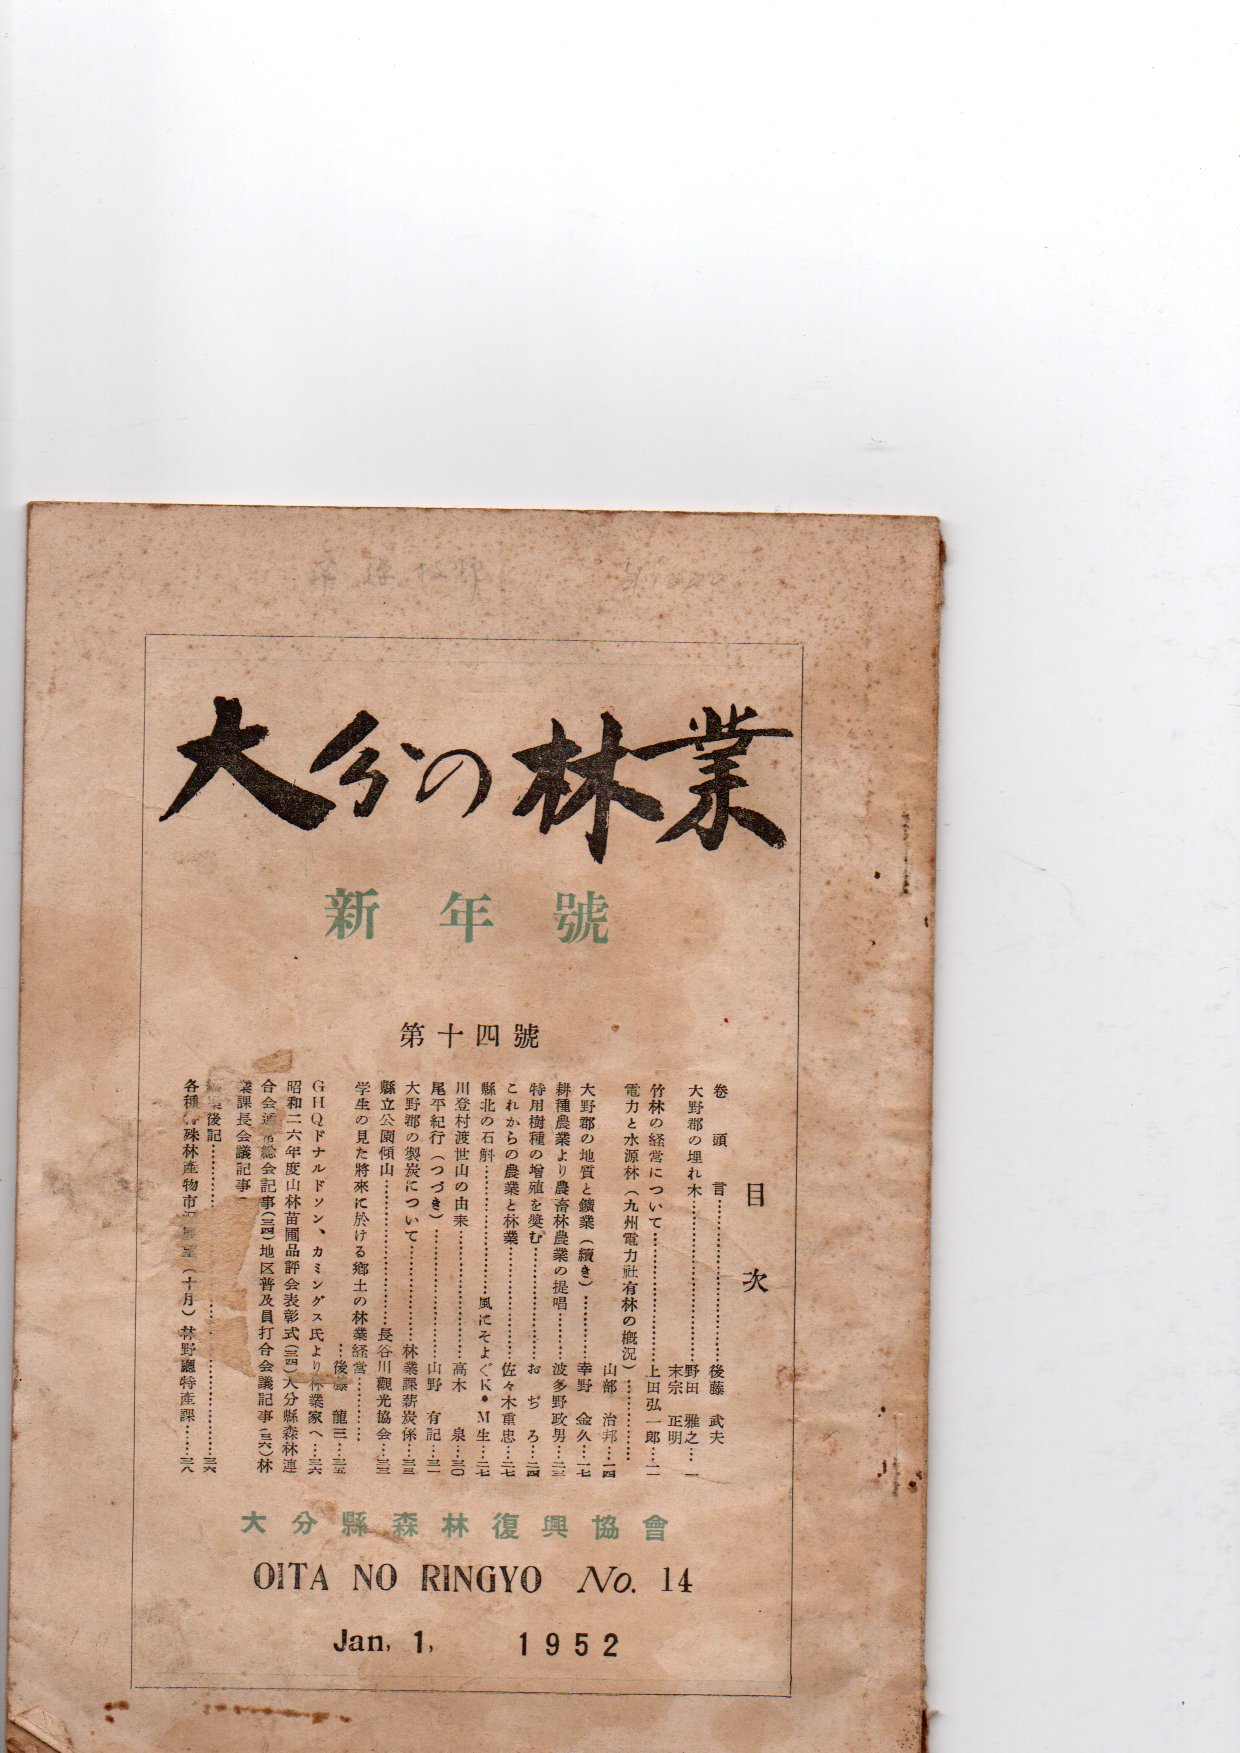 大分の林業
新年號
第十四號
目次
卷頭言……………………後藤 武夫
大野郡の埋れ木……………………野田 雅之…一
末宗 正明
竹林の経営について……………………上田弘一郎…一一
電力と水源林(九州電力社有林の概況)……………
山部 治邦…一四
大野郡の地質と鑛業(續き)…………幸野 金久…一七
耕種農業より農畜林農業の提唱………波多野政男…二三
特用樹種の増殖を奬む…………………おぢろ…二四
これからの農業と林業…………………佐々木重忠…二七
縣北の石斛……………………風にそよぐK・M生…二七
川登村渡世山の由来……………………高木 泉…三〇
尾平紀行(つづき)……………………山野 有記…三一
大野郡の製炭について…………………林業課薪炭係…三三
縣立公園傾山……………………長谷川觀光協会…三三
学生の見た將來に於ける郷土の林業経営…………
…後藤 龍三…三五
GHQドナルドソン、カミングス氏より林業家へ…三六
昭和二六年度山林苗圃品評会表彰式(三四)大分縣森林連
合会通常総会記事(三四)地区普及員打合会議記事(三六)林
業課長会議記事
後記……………………三六
各種特殊林産物市況(十月)林野廳特産課……三八
大分縣森林復興協會
OITA NO RINGYO No. 14
Jan, 1, 1952